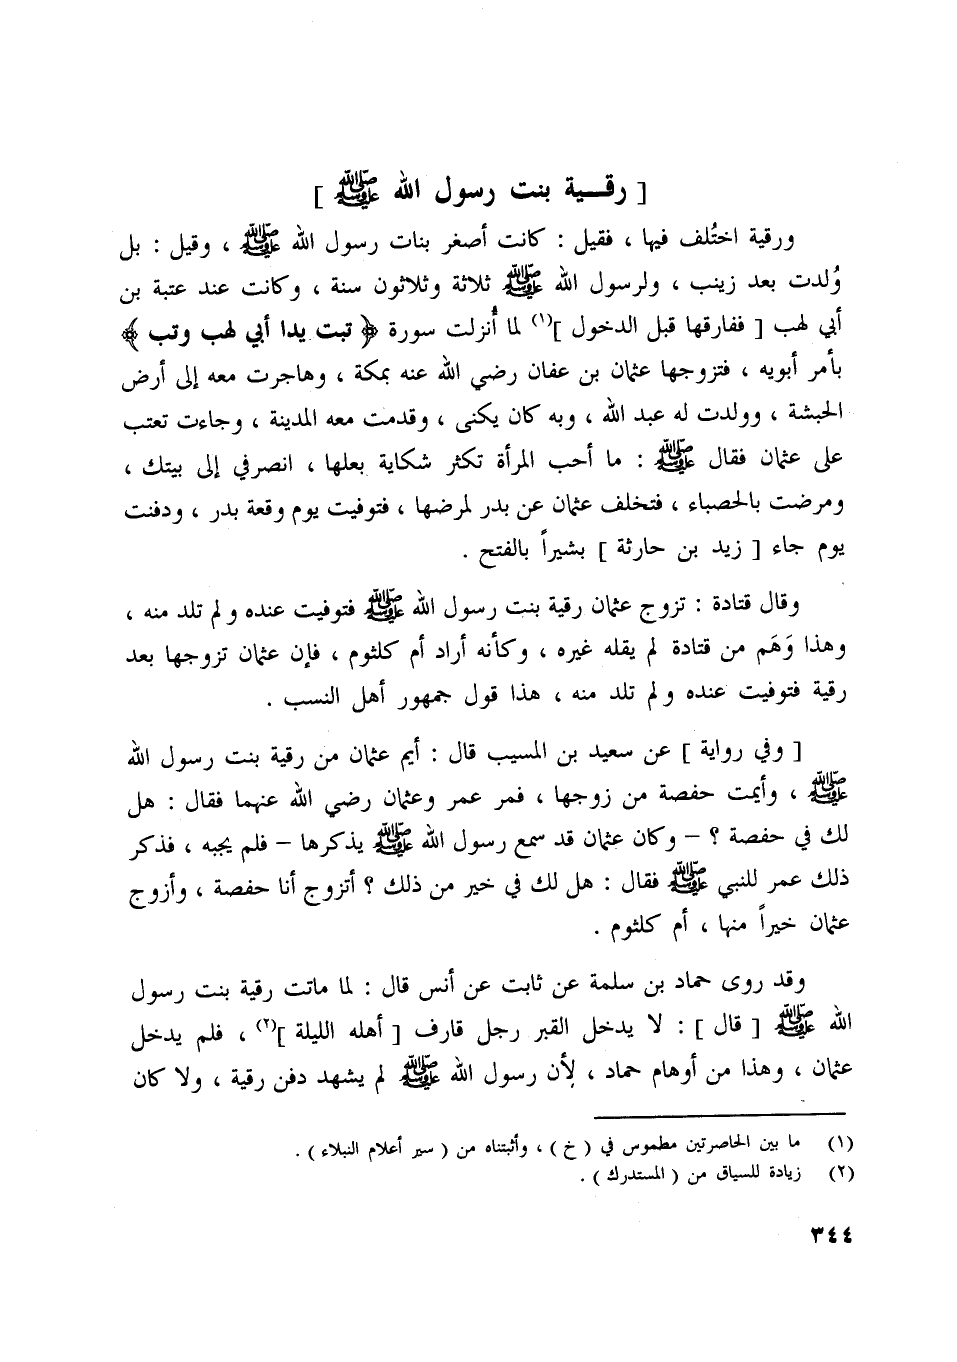 [ رقـــية بنت رسول الله ﷺ ]
ورقية اختُلف فيها ، فقيل : كانت أصغر بنات رسول الله ﷺ ، وقيل : بل
وُلدت بعد زينب ، ولرسول الله ﷺ ثلاثة وثلاثون سنة ، وكانت عند عتبة بن
أبي لهب [ ففارقها قبل الدخول ](١) لما أُنزلت سورة ﴿ تبت يدا أبي لهب وتب ﴾
بأمر أبويه ، فتزوجها عثمان بن عفان رضي الله عنه بمكة ، وهاجرت معه إلى أرض
الحبشة ، وولدت له عبد الله ، وبه كان يكنى ، وقدمت معه المدينة ، وجاءت تعتب
على عثمان فقال ﷺ : ما أحب المرأة تكثر شكاية بعلها ، انصرفي إلى بيتك ،
ومرضت بالحصباء ، فتخلف عثمان عن بدر لمرضها ، فتوفيت يوم وقعة بدر ، ودفنت
يوم جاء [ زيد بن حارثة ] بشيراً بالفتح .
وقال قتادة : تزوج عثمان رقية بنت رسول الله ﷺ فتوفيت عنده ولم تلد منه ،
وهذا وَهَم من قتادة لم يقله غيره ، وكأنه أراد أم كلثوم ، فإن عثمان تزوجها بعد
رقية فتوفيت عنده ولم تلد منه ، هذا قول جمهور أهل النسب .
[ وفي رواية ] عن سعيد بن المسيب قال : أيم عثمان من رقية بنت رسول الله
ﷺ ، وأيمت حفصة من زوجها ، فمر عمر وعثمان رضي الله عنهما فقال : هل
لك في حفصة ؟ – وكان عثمان قد سمع رسول الله ﷺ يذكرها – فلم يجبه ، فذكر
ذلك عمر للنبي ﷺ فقال : هل لك في خير من ذلك ؟ أتزوج أنا حفصة ، وأزوج
عثمان خيراً منها ، أم كلثوم .
وقد روى حماد بن سلمة عن ثابت عن أنس قال : لما ماتت رقية بنت رسول
الله ﷺ [ قال ] : لا يدخل القبر رجل قارف [ أهله الليلة ](٢) ، فلم يدخل
عثمان ، وهذا من أوهام حماد ، لأن رسول الله ﷺ لم يشهد دفن رقية ، ولا كان
(١) ما بين الحاصرتين مطموس في ( خ ) ، وأثبتناه من ( سير أعلام النبلاء ) .
(٢) زيادة للسياق من ( المستدرك ) .
٣٤٤